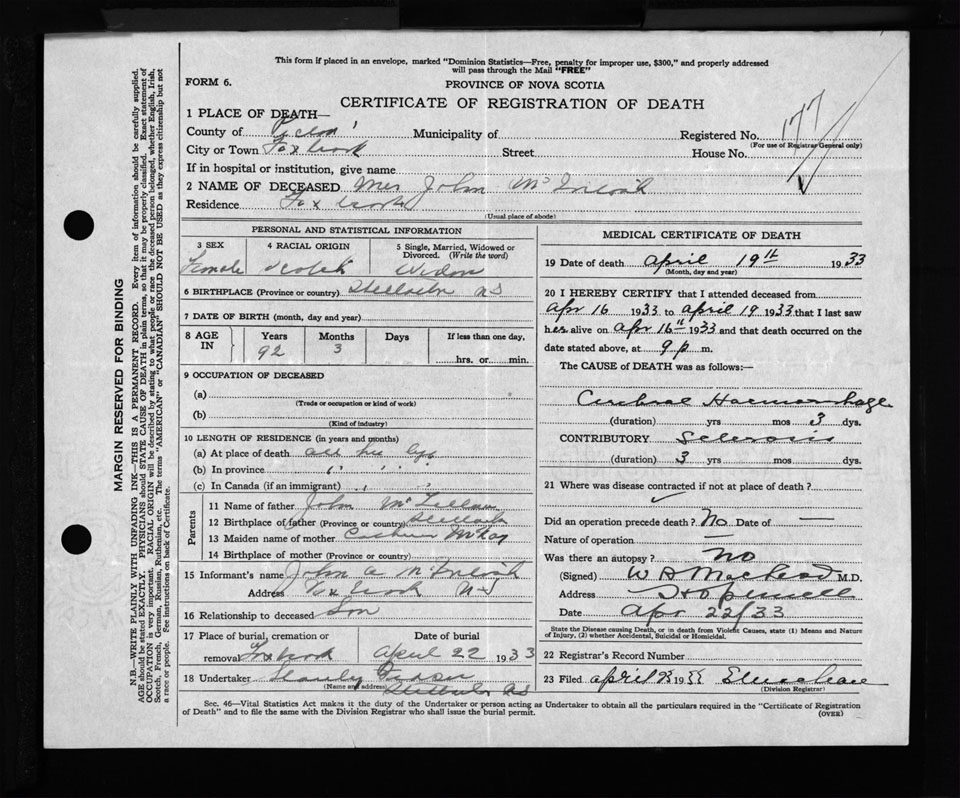 This form if placed in an envelope, marked "Dominion Statistics—Free, penalty for improper use, $300," and properly addressed
will pass through the Mail "FREE"
FORM 6.
PROVINCE OF NOVA SCOTIA
CERTIFICATE OF REGISTRATION OF DEATH
177
1 PLACE OF DEATH—
County of Pictou Municipality of Registered No.
(For use of Registrar General only)
City or Town Foxbrook Street House No.
If in hospital or institution, give name
2 NAME OF DECEASED Mrs John McIntosh
Residence Foxbrook
(Usual place of abode)
PERSONAL AND STATISTICAL INFORMATION
3 SEX 4 RACIAL ORIGIN 5 Single, Married, Widowed or Divorced. (Write the word)
Female Scotch Widow
6 BIRTHPLACE (Province or country) Stellarton NS
7 DATE OF BIRTH (month, day and year)
8 AGE IN Years Months Days If less than one day,
92 3
hrs. or min.
9 OCCUPATION OF DECEASED
(a)
(Trade or occupation or kind of work)
(b)
(Kind of industry)
10 LENGTH OF RESIDENCE (in years and months)
(a) At place of death all her life
(b) In province " " "
(c) In Canada (if an immigrant) " "
Parents
11 Name of father John
12 Birthplace of father (Province or country)
13 Maiden name of mother McKay
14 Birthplace of mother (Province or country)
15 Informant's name John A McIntosh
Address Fox Brook NS
16 Relationship to deceased Son
17 Place of burial, cremation or removal Foxbrook
Date of burial April 22 1933
18 Undertaker
(Name and address) Stellarton NS
MEDICAL CERTIFICATE OF DEATH
19 Date of death April 19th 1933
(Month, day and year)
20 I HEREBY CERTIFY that I attended deceased from
Apr 16 1933 to April 19 1933 that I last saw
her alive on Apr 16th 1933 and that death occurred on the
date stated above, at 9 p m.
The CAUSE of DEATH was as follows:—
Cerebral Haemorrhage
(duration) yrs mos 3 dys.
CONTRIBUTORY Sclerosis
(duration) 3 yrs mos dys.
21 Where was disease contracted if not at place of death?
Did an operation precede death? No Date of —
Nature of operation —
Was there an autopsy? No
(Signed) M.D.
Address Hopewell
Date Apr 22/33
State the Disease causing Death, or in death from Violent Causes, state (1) Means and Nature
of Injury, (2) whether Accidental, Suicidal or Homicidal.
22 Registrar's Record Number
23 Filed April 19
(Division Registrar)
Sec. 46—Vital Statistics Act makes it the duty of the Undertaker or person acting as Undertaker to obtain all the particulars required in the "Certificate of Registration
of Death" and to file the same with the Division Registrar who shall issue the burial permit.
(OVER)
MARGIN RESERVED FOR BINDING
N.B.—WRITE PLAINLY WITH UNFADING INK—THIS IS A PERMANENT RECORD. Every item of information should be carefully supplied.
AGE should be stated EXACTLY. PHYSICIANS should STATE CAUSE OF DEATH in plain terms, so that it may be properly classified. Exact statement of
OCCUPATION is very important. RACIAL ORIGIN will be described by stating to what people or race the deceased person belonged, whether English, Irish,
Scotch, French, German, Russian, Ruthenian, etc. The terms "AMERICAN" or "CANADIAN" SHOULD NOT BE USED as they express citizenship but not
a race or people. See instructions on back of Certificate.